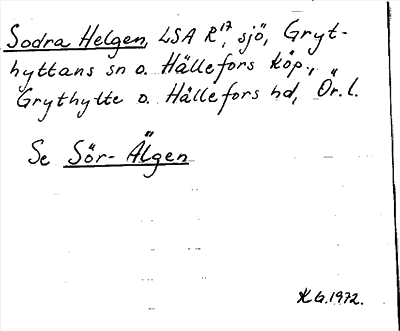 Sodra Helgen, LSA R17, sjö, Gryt-
hyttans sn o. Hällefors köp.,
Grythytte o. Hällefors hd, Ör. l.
Se Sör-Älgen
K G. 1972.